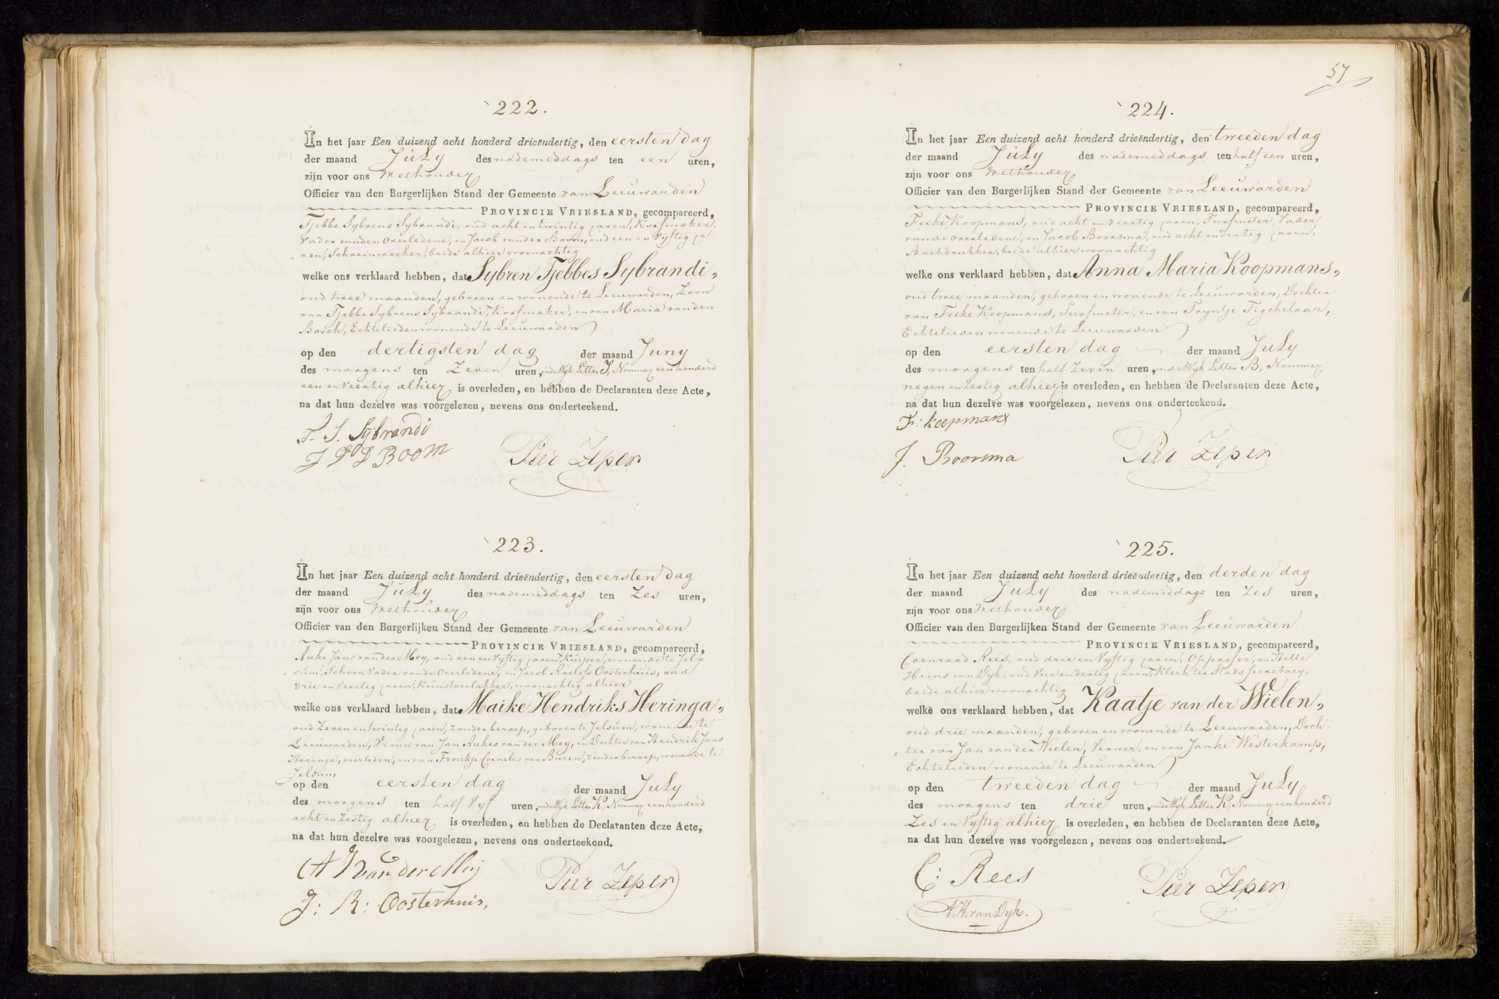 222.
In het jaar Een duizend acht honderd drieëndertig, den eersten dag
der maand July des nademiddags ten een uren,
zijn voor ons Wethouder
Officier van den Burgerlijken Stand der Gemeente van Leeuwarden
PROVINCIE VRIESLAND, gecompareerd,
Tjebbe Sybrens Sybrandi, oud acht en twintig jaren, Koefmaker,
Vader van den Overledene, en Jacob van der Boom, oud een en vyftig ja-
ren, Schoenmaker, beide alhier woonachtig
welke ons verklaard hebben, dat Sybren Tjebbes Sybrandi,
oud twee maanden, geboren en wonende te Leeuwarden, Zoon
van Tjebbe Sybrens Sybrandi, Koefmaker, en van Maria van den
Bosch, Echtelieden wonende te Leeuwarden
op den dertigsten dag der maand Juny
des morgens ten Zeven uren, in de Wyk Letter I, Nummer een honderd
een en veertig alhier is overleden, en hebben de Declaranten deze Acte,
na dat hun dezelve was voorgelezen, nevens ons onderteekend.
T. S. Sybrandi
J V D BOOM
Pier Zeper
223.
In het jaar Een duizend acht honderd drieëndertig, den eersten dag
der maand July des nademiddags ten Zes uren,
zijn voor ons Wethouder
Officier van den Burgerlijken Stand der Gemeente van Leeuwarden
PROVINCIE VRIESLAND, gecompareerd,
Anke Jans van der Mey, oud een en vyftig jaren, Kuiper, wonende te Jel-
sum, Schoon Vader van de Overledene, en Jacob Roelofs Oosterhuis, oud
drie en veertig jaren, woonachtig alhier
welke ons verklaard hebben, dat Maike Hendriks Heringa,
oud Zeven en twintig jaren, Zonder beroep, geboren te Jelsum, wonende te
Leeuwarden, Vrouw van Jan Ankes van der Mey, en Dochter van Hendrik Jans
Heringa, overleden, en van Froukje Cornelis van Buren, Zonder beroep, wonende te
Jelsum,
op den eersten dag der maand July
des morgens ten half vyf uren, in de Wyk Letter K, Nummer een honderd
acht en Zestig alhier is overleden, en hebben de Declaranten deze Acte,
na dat hun dezelve was voorgelezen, nevens ons onderteekend.
A J van der Mey
J: R: Oosterhuis,
Pier Zeper
57
224.
In het jaar Een duizend acht honderd drieëndertig, den tweeden dag
der maand July des nademiddags ten half een uren,
zijn voor ons Wethouder
Officier van den Burgerlijken Stand der Gemeente van Leeuwarden
PROVINCIE VRIESLAND, gecompareerd,
Feike Koopmans, oud acht en dertig jaren, Turfmeter, Vader
van de Overledene, en Jacob Boorsma, oud acht en dertig jaren,
Boekdrukker, beide alhier woonachtig
welke ons verklaard hebben, dat Anna Maria Koopmans,
oud twee maanden, geboren en wonende te Leeuwarden, Dochter
van Feike Koopmans, Turfmeter, en van Tryntje Tichelaar,
Echtelieden wonende te Leeuwarden
op den eersten dag der maand July
des morgens ten half Zeven uren, in de Wyk Letter B, Nummer
negen en Zestig alhier is overleden, en hebben de Declaranten deze Acte,
na dat hun dezelve was voorgelezen, nevens ons onderteekend.
F: koopmans
J. Boorsma
Pier Zeper
225.
In het jaar Een duizend acht honderd drieëndertig, den derden dag
der maand July des nademiddags ten Zes uren,
zijn voor ons Wethouder
Officier van den Burgerlijken Stand der Gemeente van Leeuwarden
PROVINCIE VRIESLAND, gecompareerd,
Coenraad Rees, oud drie en vyftig jaren, Oppasser, en Helle
Heins van Dyk, oud vier en dertig jaren, Klerk ter Stads Secretary,
beide alhier woonachtig
welke ons verklaard hebben, dat Kaatje van der Wielen,
oud drie maanden, geboren en wonende te Leeuwarden, Doch-
ter van Jan van der Wielen, Verwer, en van Janke Westerkamp,
Echtelieden wonende te Leeuwarden
op den tweeden dag der maand July
des morgens ten drie uren, in de Wyk Letter K, Nummer een honderd
Zes en vyftig alhier is overleden, en hebben de Declaranten deze Acte,
na dat hun dezelve was voorgelezen, nevens ons onderteekend.
C: Rees
H.H. van Dyk.
Pier Zeper